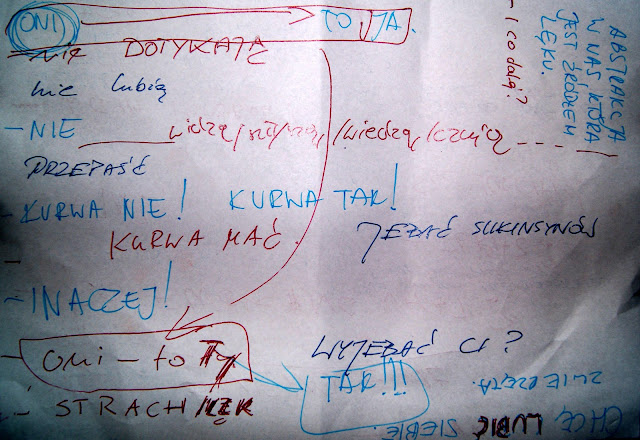 ONI TO JA.
nie DOTYKAJĄ
nie lubią
- NIE widzą/słyszą/wiedzą/czują
PRZEPAŚĆ
- KURWA NIE! KURWA TAK!
KURWA MAĆ. JEBAĆ SUKINSYNÓW
- INACZEJ!
- Oni - to Ty
WYJEBAĆ CI?
TAK!!!
- STRACH LĘK
ABSTRAKCJA
W NAS KTÓRA
JEST ŹRÓDŁEM
LĘKU.
- I co dalej?
ZWIERZĘTA.
CHCĘ LUBIĆ SIEBIE.